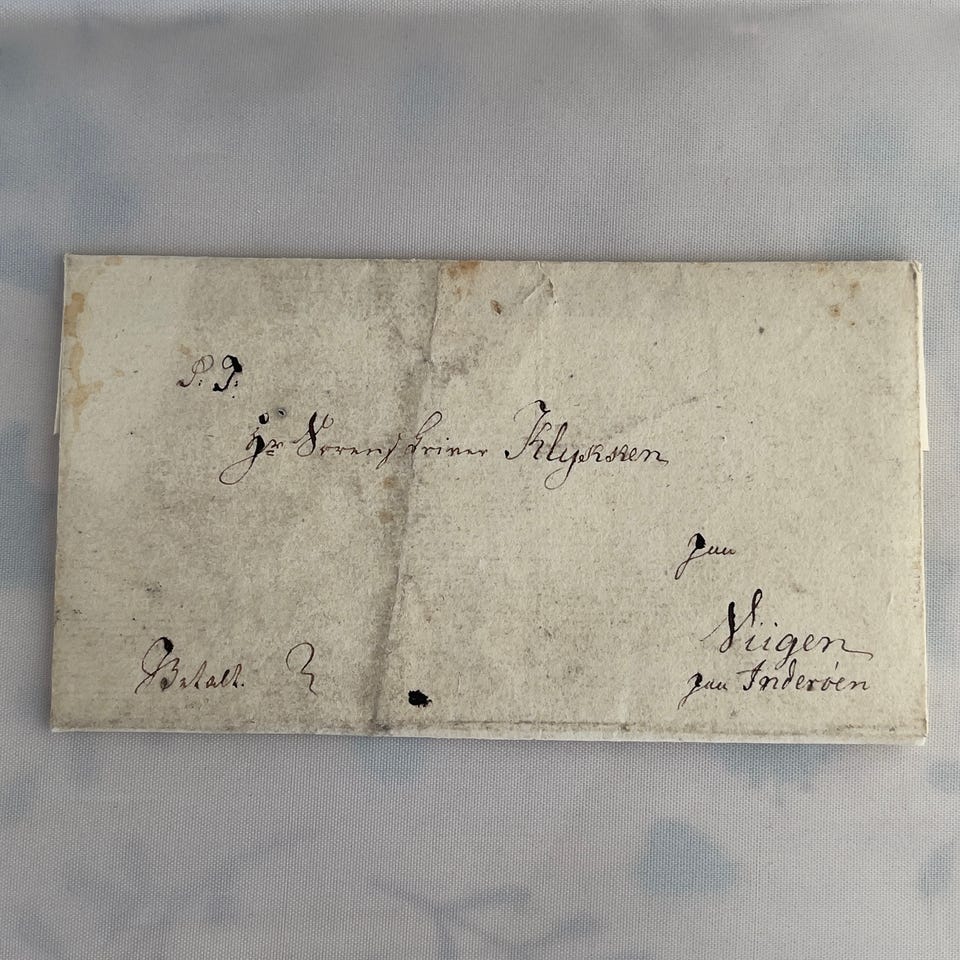 S. T.
Hr Sorenskriver Klykken
paa
Viigen
paa Inderöen
Betalt.